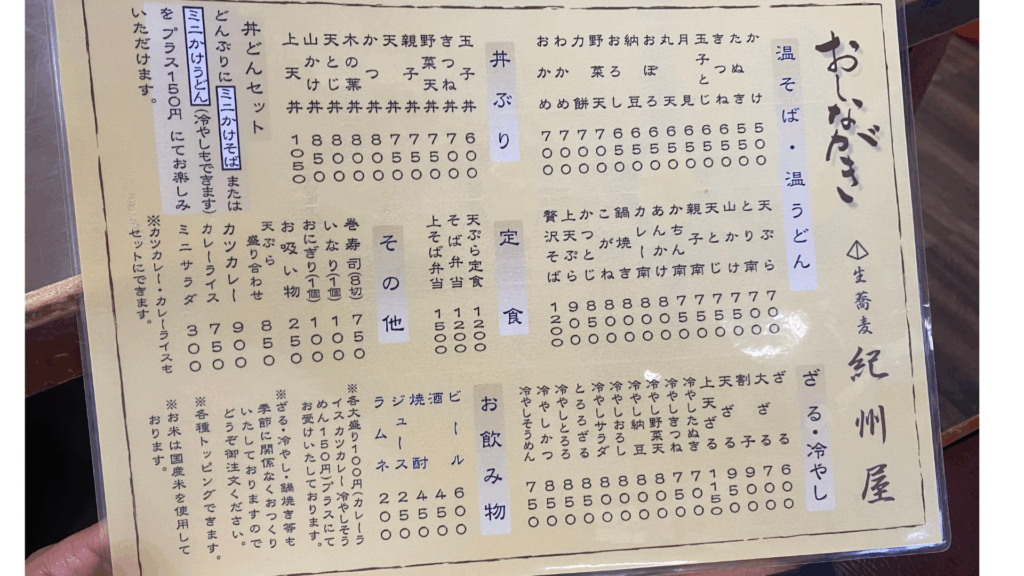 おしながき
生蕎麦 紀州屋
温そば・温うどん
かけ 500
たぬき 550
きつね 550
玉子とじ 650
月見 650
丸天 650
おぼろ 650
納豆 650
おろし 650
野菜天 700
力餅 700
わかめ 700
おかめ 700
天ぷら 700
とり南 700
山かけ 700
天とじ 750
親子南 750
かちん南 750
あんかけ 800
カレー南 800
鍋焼き 800
こがね 800
かつとじ 850
上天ぷら 900
贅沢そば 1200
ざる・冷やし
ざる 600
大ざる 700
割子 900
天ざる 950
上天ざる 1150
冷やしたぬき 700
冷やしきつね 750
冷やし野菜天 800
冷やし納豆 800
冷やしおろし 800
冷やしサラダ 850
とろろざる 850
冷やしとろろ 850
冷やしかつ 850
冷やしそうめん 750
丼ぶり
玉子丼 600
きつね丼 700
野菜天丼 750
親子丼 750
天丼 750
かつ丼 800
木の葉丼 800
天とじ丼 850
山かけ丼 850
上天丼 1050
定食
天ぷら定食 1200
そば弁当 1200
上そば弁当 1500
お飲み物
ビール 600
酒 450
焼酎 450
ジュース 250
ラムネ 200
丼どんセット
どんぶりにミニかけそばまたは
ミニかけうどん(冷やしもできます)
をプラス150円にてお楽しみ
いただけます。
その他
巻寿司(8切) 750
いなり(1個) 100
おにぎり(1個) 100
お吸い物 250
天ぷら盛り合わせ 850
カツカレー 900
カレーライス 750
ミニサラダ 300
※カツカレー・カレーライスも
セットにできます。
※各大盛り100円(カレーラ
イスカツカレー冷やしそう
めん150円)プラスにて
お受けいたしております。
※ざる・冷やし・鍋焼き等も
季節に関係なくおつくり
いたしておりますので
どうぞ御注文ください。
※各種トッピングできます。
※お米は国産米を使用して
おります。